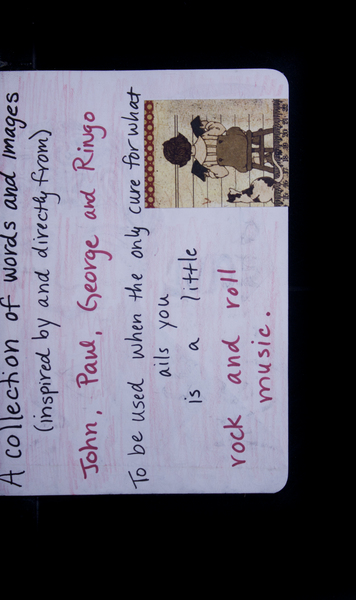 A collection of words and images
(inspired by and directly from)
John, Paul, George and Ringo
To be used when the only cure for what
ails you
is a little
rock and roll
music.